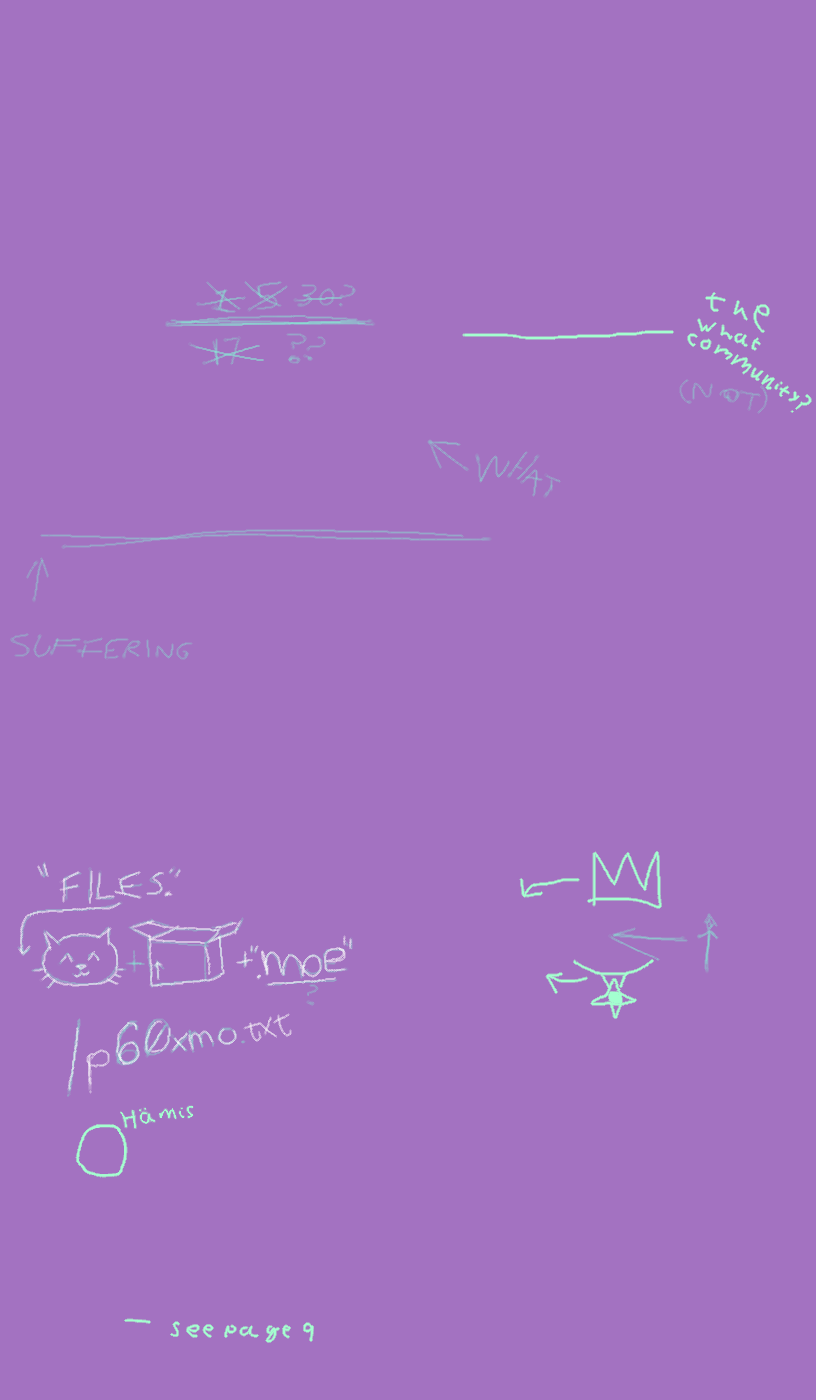 1 5 30?
17 ??
the
what
community?
(NOT)
WHAT
SUFFERING
"FILES."
+ + ".moe"
?
/p60xmo.txt
Hämis
— see page 9